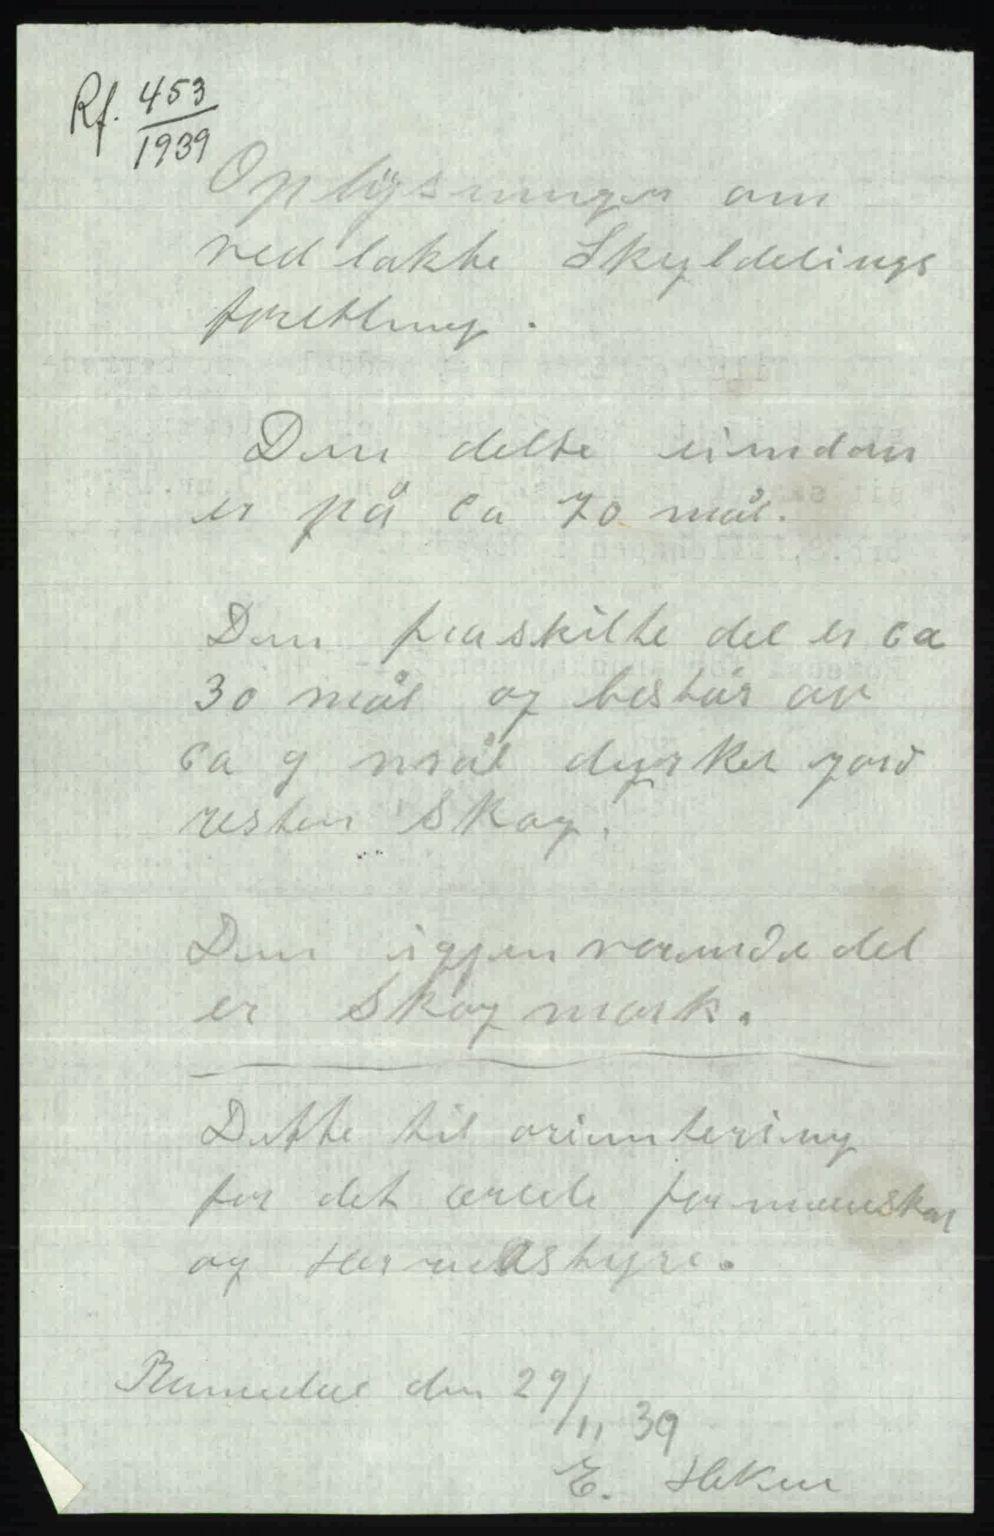 Rf. 453
1939
Oplysninger om
vedlakte Skyldelings
foretning.
Den delte eiendom
er på ca 70 mål.
Den fraskilte del er ca
30 mål og består av
ca 9 mål dyrket jord
resten Skog.
Den igjenværende del
er Skogmark.
Dette til orientering
for det ærede formannskap
og Herredstyre.
den 29/11 39
E.